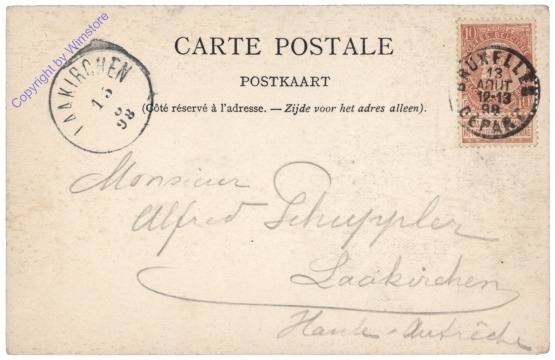 Copyright by Wimstore
LAAKIRCHEN
15
8
98
CARTE POSTALE
POSTKAART
(Côté réservé à l'adresse. — Zijde voor het adres alleen).
10
BRUXELLES
13
AOUT
12-13
98
DÉPART
Monsieur
Alfred Schuppler
Laakirchen
Haute-Autrêche